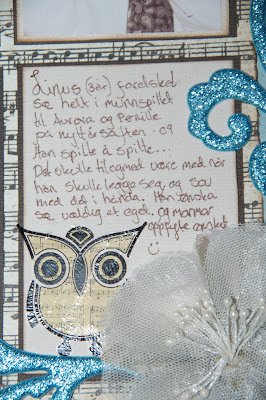 Linus (3år) forelsket
se helt i munnspillet
til Aurora og Pernille
på nyttårsaften -09
Han spilte å spilte...
Det skulle tilogmed være med når
han skulle legge seg, og sov
med det i hånda. Han ønska
se veldig et eget, og mormor
oppfylte ønsket